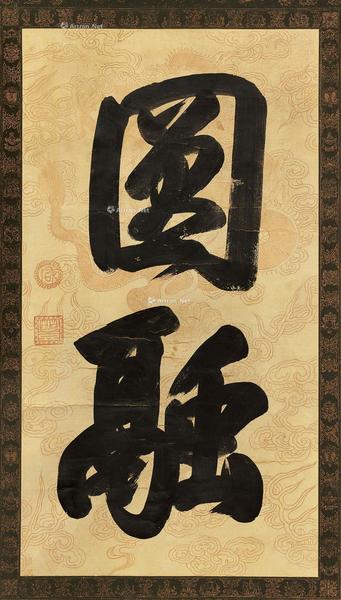 圓
融
Artron.Net
Artron.Net
Artron.Net